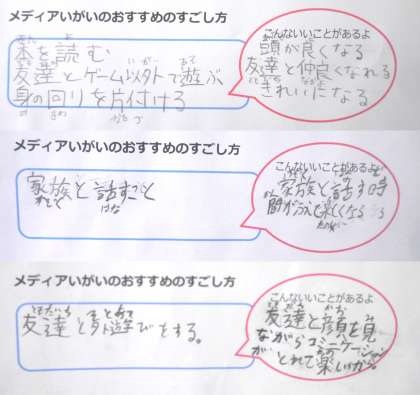 メディアいがいのおすすめのすごし方
本を読む
友達とゲーム以外で遊ぶ
身の回りを片付ける
こんないいことがあるよ
頭が良くなる
友達と仲良くなれる
きれいになる
メディアいがいのおすすめのすごし方
家族と話すこと
こんないいことがあるよ
家族と話す時
間がふえて楽しくなる
メディアいがいのおすすめのすごし方
友達と外遊びをする。
こんないいことがあるよ
友達と顔を見
ながらコミュニケーション
がとれて楽しいから。